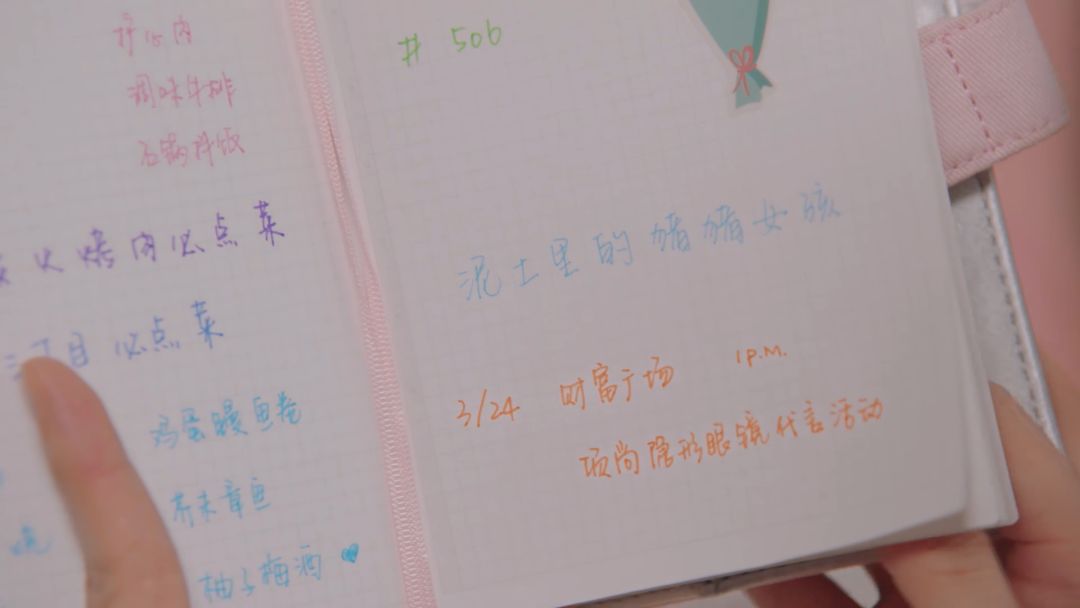 调味牛排
石锅拌饭
火烤肉必点菜
三丁目必点菜
鸡蛋鳗鱼卷
芥末章鱼
柚子梅酒
# 506
泥土里的猪猪女孩
3/24 财富广场 1 P.M.
项尚隐形眼镜代言活动